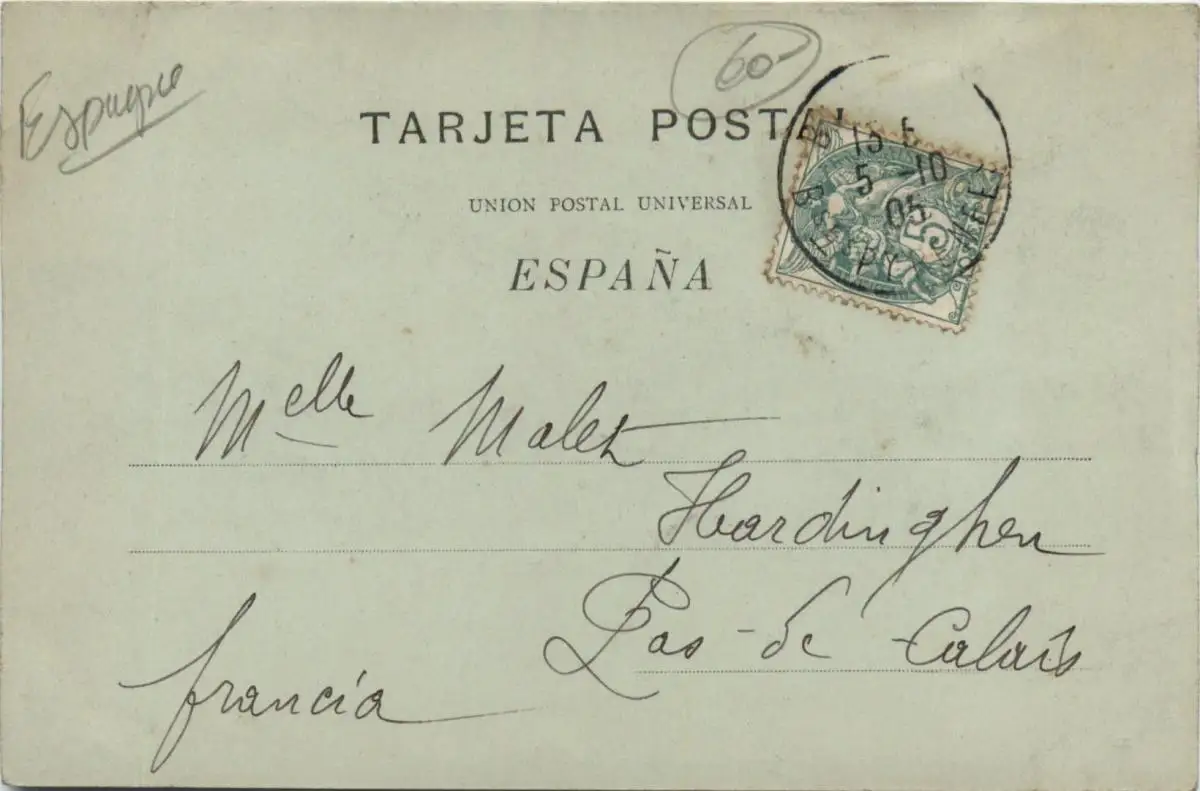 Espagne
60-
TARJETA POSTAL
UNION POSTAL UNIVERSAL
ESPAÑA
15 E
5 -10
05
5
Melle Malet
Hardinghen
Pas-de-Calais
francía